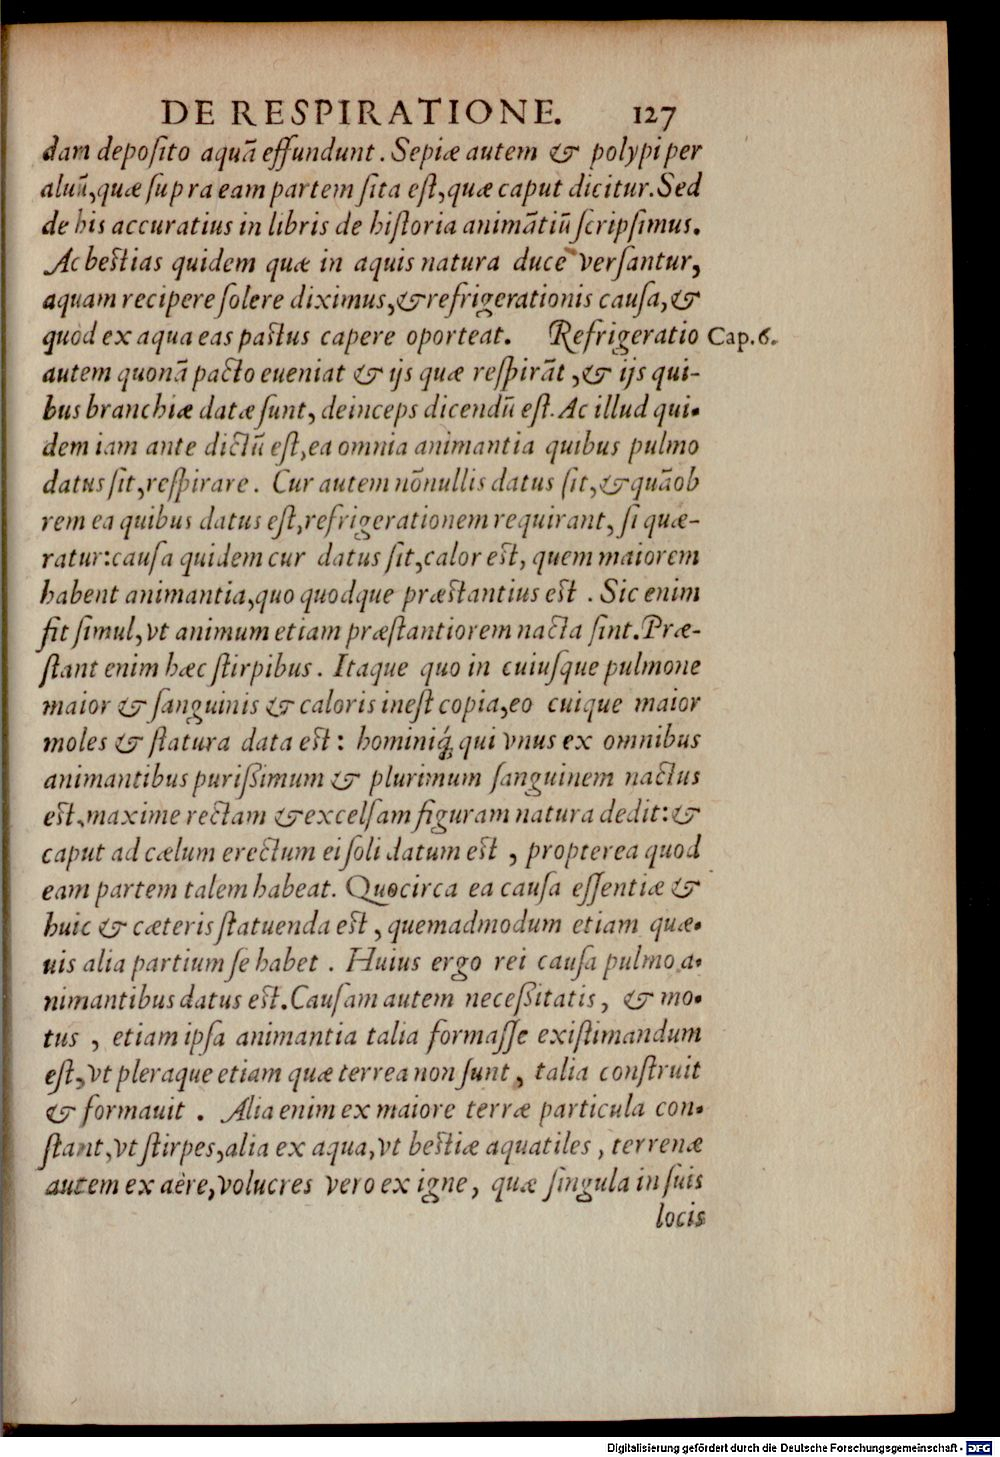 DE RESPIRATIONE. 127
dam deposito aquā effundunt. Sepiæ autem & polypi per
aluū, quæ supra eam partem sita est, quæ caput dicitur. Sed
de his accuratius in libris de historia animātiū scripsimus.
Ac bestias quidem quæ in aquis natura duce versantur,
aquam recipere solere diximus, & refrigerationis causa, &
quod ex aqua eas pastus capere oporteat. Refrigeratio Cap. 6.
autem quonā pacto eueniat & ijs quæ respirāt, & ijs qui-
bus branchiæ datæ sunt, deinceps dicendū est. Ac illud qui-
dem iam ante dictū est, ea omnia animantia quibus pulmo
datus sit, respirare. Cur autem nōnullis datus sit, & quāob
rem ea quibus datus est, refrigerationem requirant, si quæ-
ratur: causa quidem cur datus sit, calor est, quem maiorem
habent animantia, quo quodque præstantius est. Sic enim
fit simul, vt animum etiam præstantiorem nacta sint. Præ-
stant enim hæc stirpibus. Itaque quo in cuiusque pulmone
maior & sanguinis & caloris inest copia, eo cuique maior
moles & statura data est: hominiq́; qui vnus ex omnibus
animantibus purißimum & plurimum sanguinem nactus
est, maxime rectam & excelsam figuram natura dedit: &
caput ad cælum erectum ei soli datum est, propterea quod
eam partem talem habeat. Quocirca ea causa essentiæ &
huic & cæteris statuenda est, quemadmodum etiam quæ-
uis alia partium se habet. Huius ergo rei causa pulmo a-
nimantibus datus est. Causam autem neceßitatis, & mo-
tus, etiam ipsa animantia talia formasse existimandum
est, vt pleraque etiam quæ terrea non sunt, talia construit
& formauit. Alia enim ex maiore terræ particula con-
stant, vt stirpes, alia ex aqua, vt bestiæ aquatiles, terrenæ
autem ex aëre, volucres vero ex igne, quæ singula in suis
locis
Digitalisierung gefördert durch die Deutsche Forschungsgemeinschaft - DFG